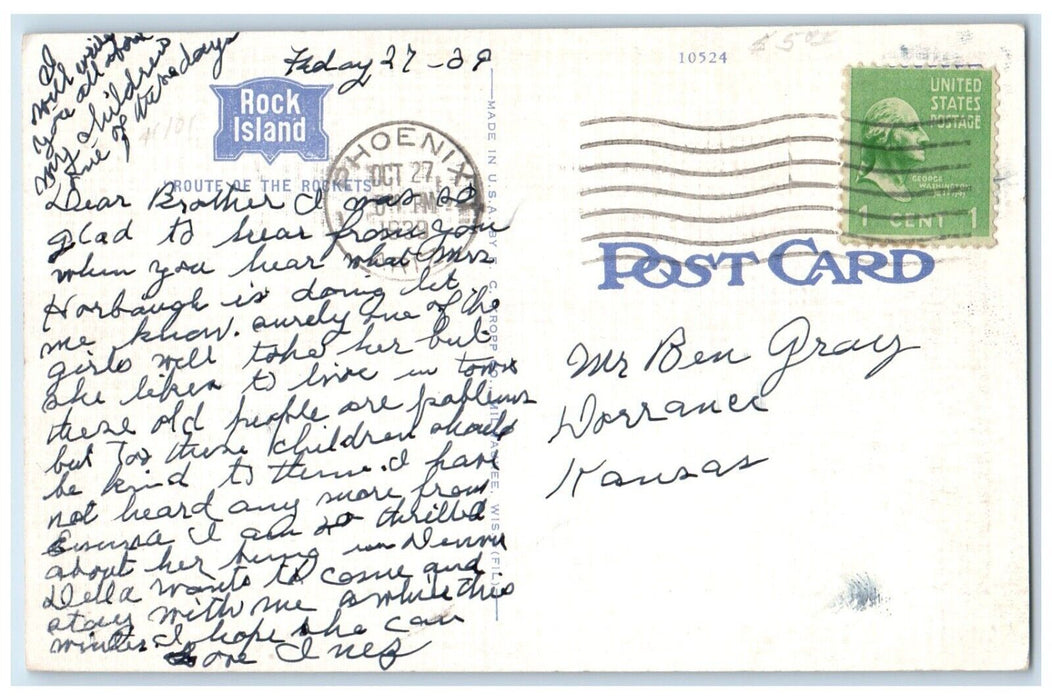 I
will write
you all of our
my children
one of these days
Feday 27-39
10524
Rock
Island
ROUTE OF THE ROCKETS
PHOENIX
OCT 27
PM
1939
UNITED
STATES
POSTAGE
GEORGE
WASHINGTON
1 CENT 1
POST CARD
MADE IN U.S.A. BY E. C. KROPP CO., MILWAUKEE, WIS. (FIL)
Dear Brother I was so
glad to hear from you
when you hear what Mrs
Horbaugh is doing let
me know. surely one of the
girls will take her but
she likes to live in town
these old people are problems
but Too these children should
be kind to them. I have
not heard any more from
Emma I am so thrilled
about her being in Denver
Della wants to come and
stay with me awhile this
winter. I hope she can
Love Inez
Mr Ben Gray
Dorrance
Kansas